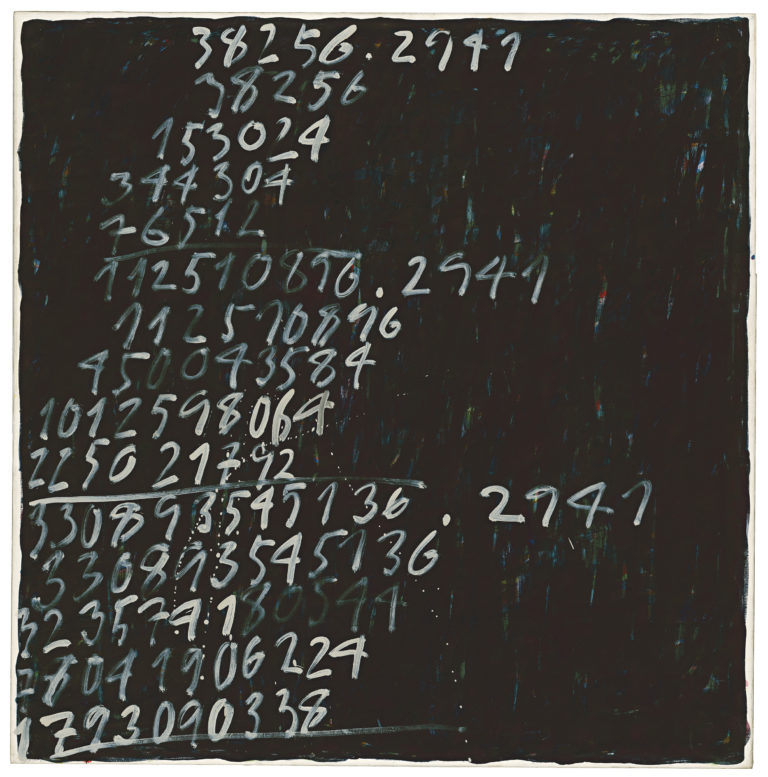 38256.2941
38256
153024
344304
76512
112510896.2941
112510896
450043584
1012598064
225021792
330893545136.2941
330893545136
323574180544
78041906224
1793090338